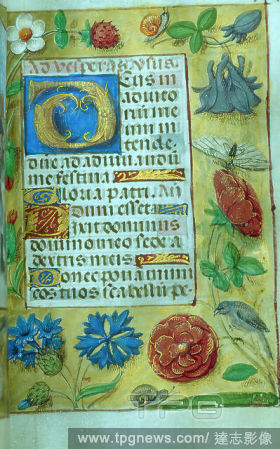 Ad vesperas
Deus in
adiuto
riũ me
um in
tende.
dñe ad adiuuandũ
me festina
Gloria patri. Añ
Dum esset
Dixit dominus
domino meo sede a
dextris meis
Donec ponã inimi
cos tuos scabellũ pe
TPG
www.tpgnews.com/ 達志影像